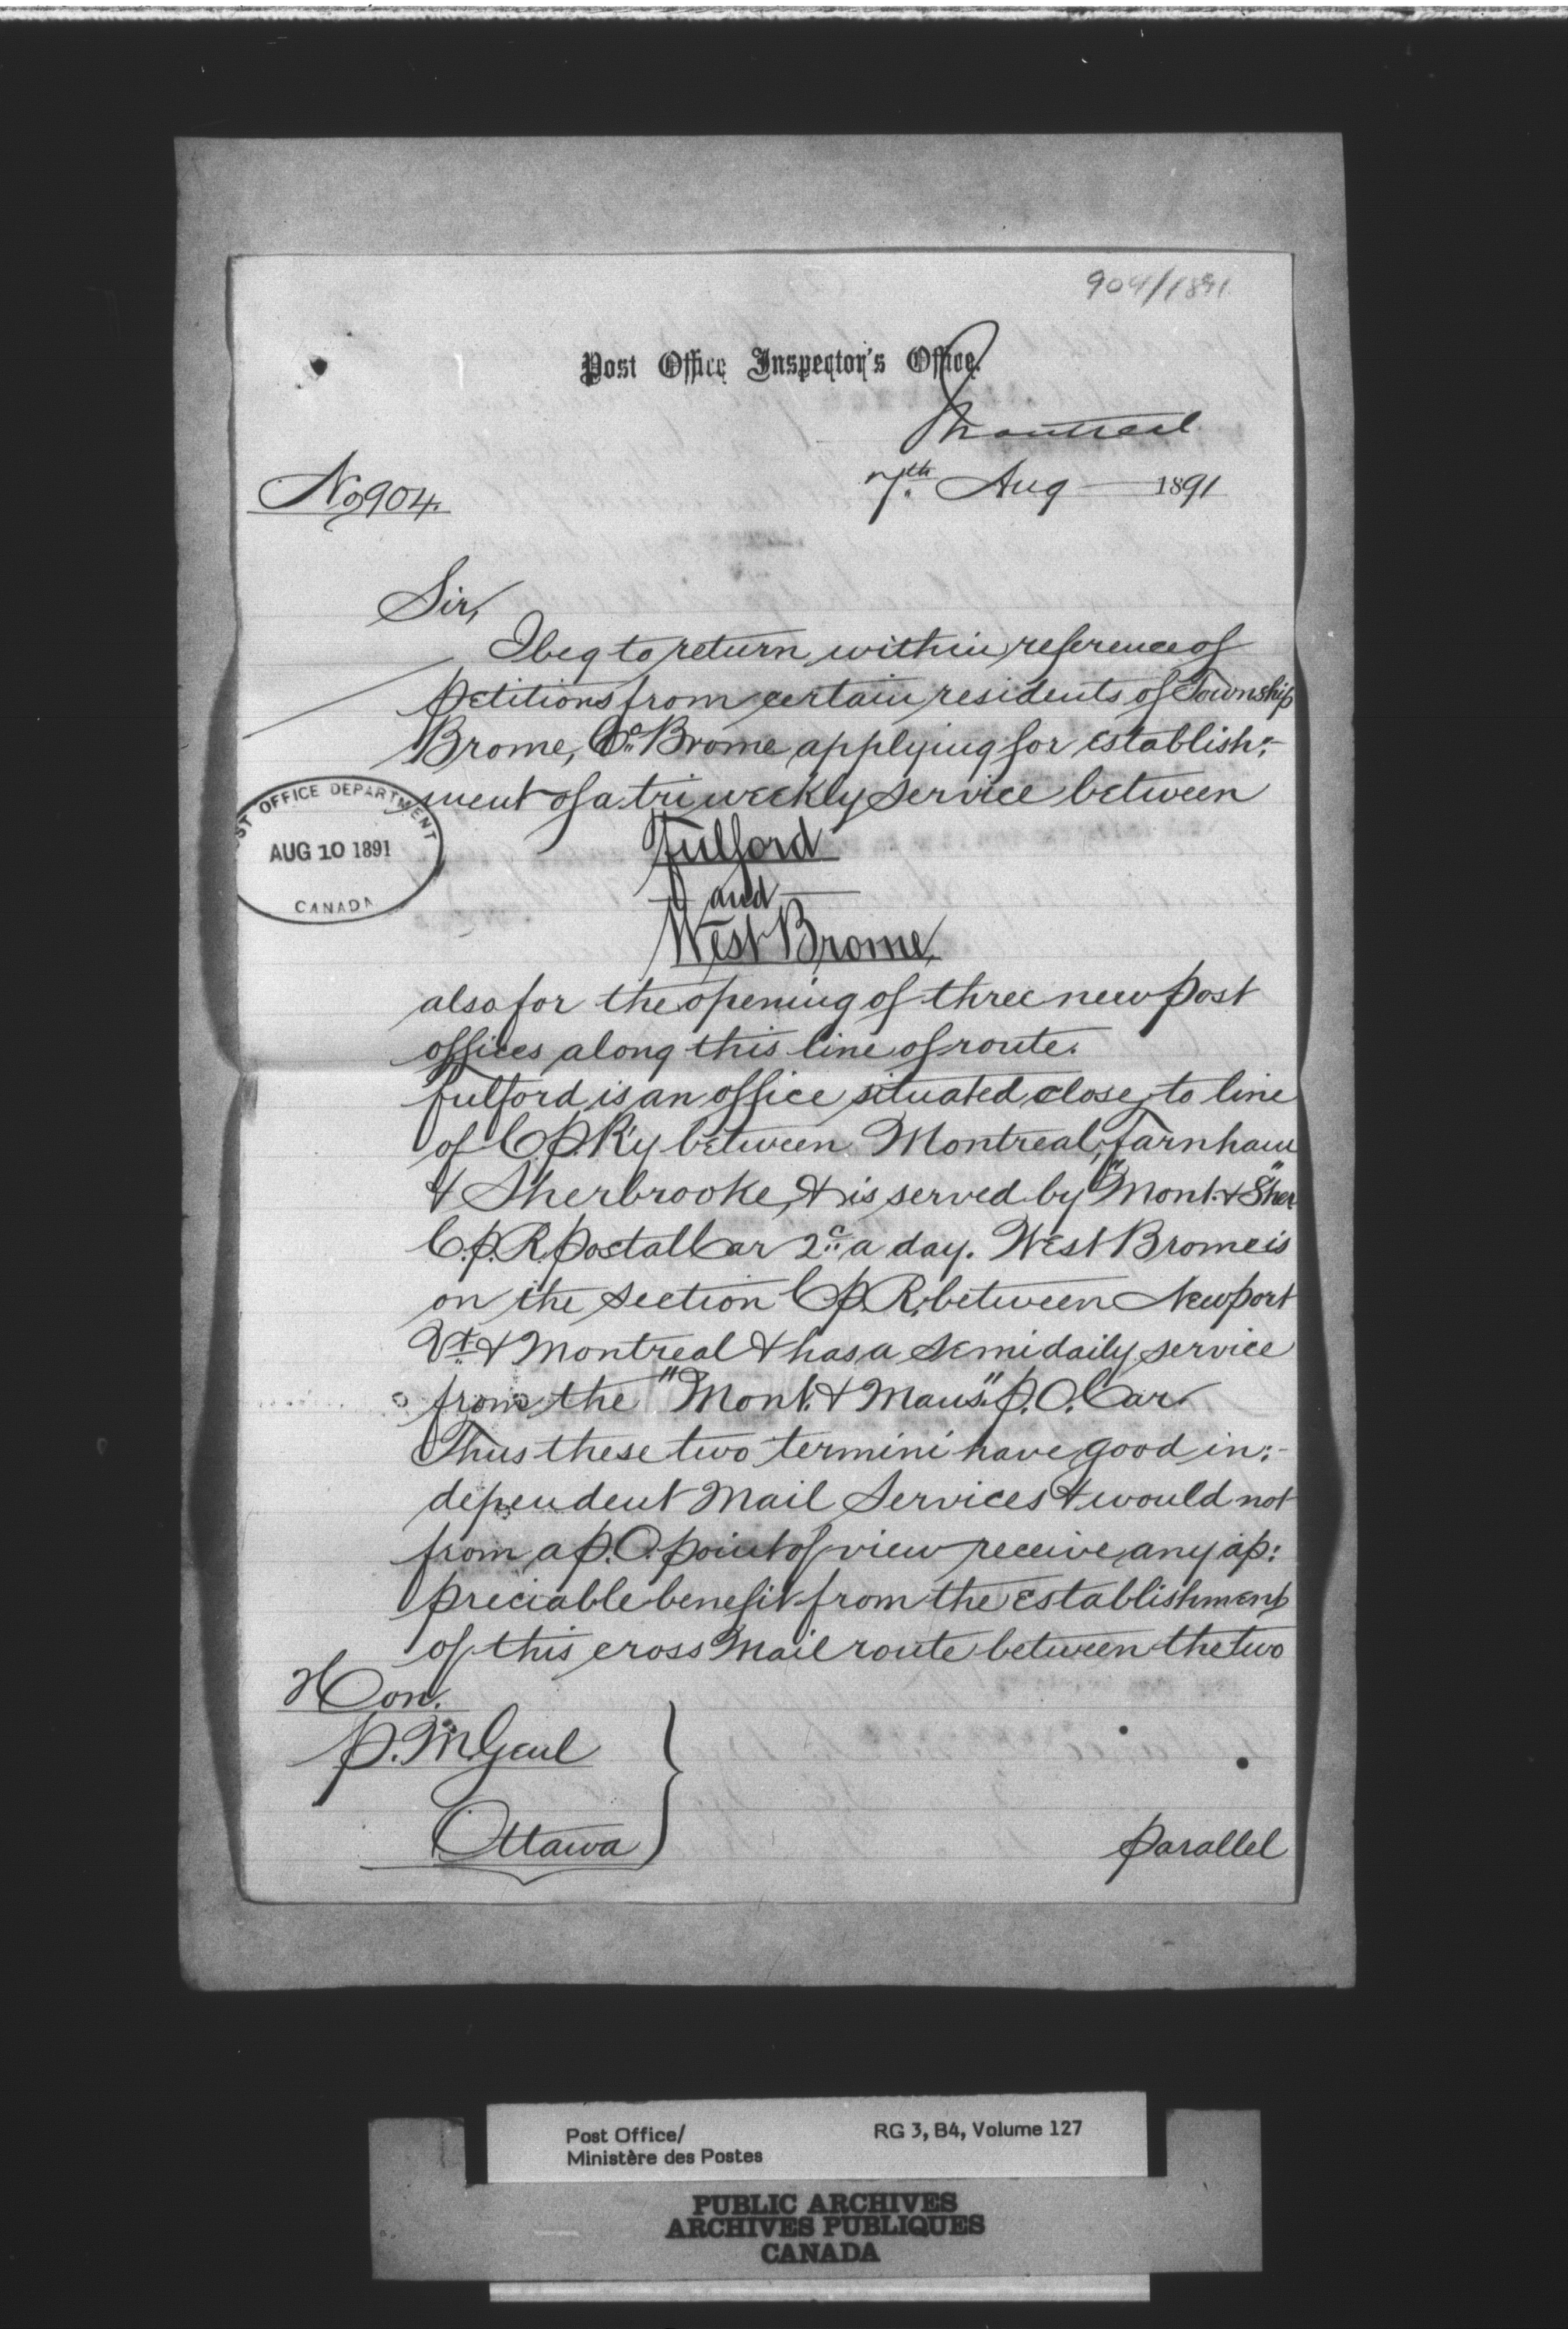 904/1891
Post Office Inspector's Office.
Montreal
7th Aug 1891
No 904.
Sir,
I beg to return within reference of
petitions from certain residents of Township
Brome, Co. Brome applying for establish:-
ment of a tri weekly service between
POST OFFICE DEPARTMENT
AUG 10 1891
CANADA
Fulford
and
West Brome
also for the opening of three new post
offices along this line of route.
Fulford is an office situated close to line
of C.P.R'y between Montreal, Farnham
& Sherbrooke, & is served by "Mont. & Sher"
C.P.R. Postal Car 2ce a day. West Brome is
on the section C.P.R. between Newport
Vt. & Montreal & has a semi daily service
from the "Mont. & Maus." P.O. Car.
Thus these two termini have good in:-
dependent Mail Services & would not
from a P.O. point of view receive any ap:
preciable benefit from the establishment
of this cross Mail route between the two
Hon.
P.M. Genl
Ottawa
parallel
Post Office/
Ministère des Postes
RG 3, B4, Volume 127
PUBLIC ARCHIVES
ARCHIVES PUBLIQUES
CANADA